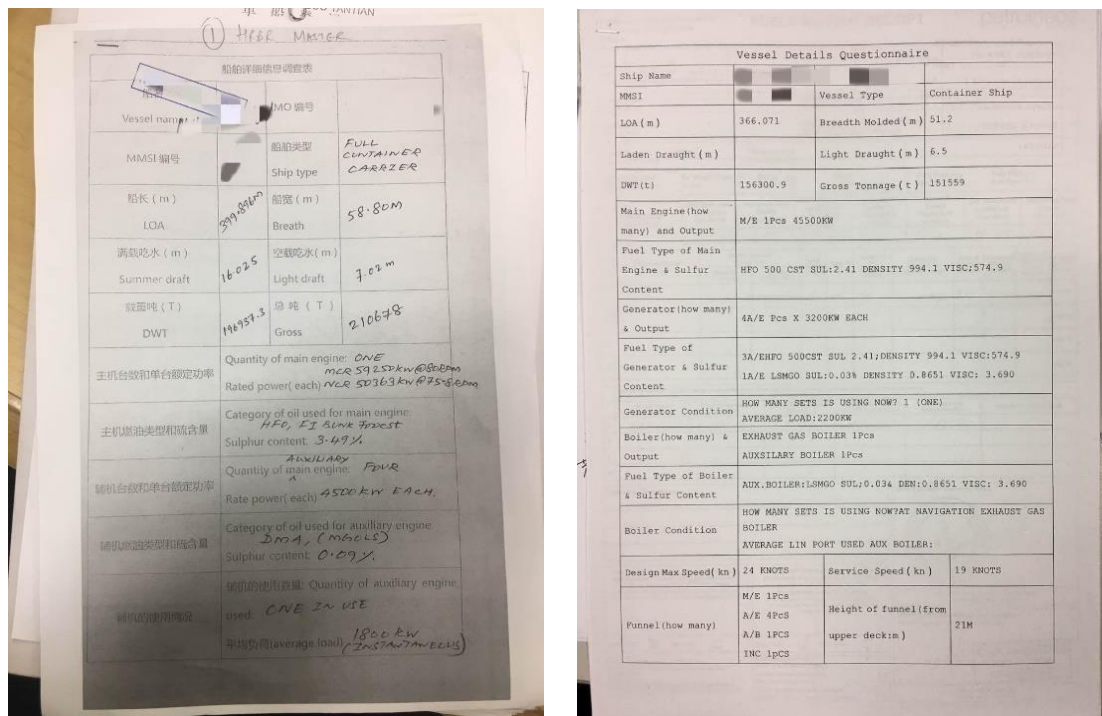 ① HRGR MASTER
船舶详细信息调查表
Vessel name
MO 编号
MMSI 编号
船舶类型
Ship type
FULL
CONTAINER
CARRIER
船长 ( m )
LOA
399.896m
船宽 ( m )
Breath
58.80M
满载吃水 ( m )
Summer draft
16.025
空载吃水( m )
Light draft
7.02 m
载重吨 ( T )
DWT
196957.3
总 吨 ( T )
Gross
210678
主机台数和单台额定功率
Quantity of main engine: ONE
MCR 59250kW@80RPM
Rated power( each) NCR 50363kW@75.8RPM
主机燃油类型和硫含量
Category of oil used for main engine:
HFO,
Sulphur content: 3.49%
辅机台数和单台额定功率
AUXILIARY
Quantity of main engine: FOUR
Rate power( each) 4500KW EACH.
辅机燃油类型和硫含量
Category of oil used for auxiliary engine
DMA,
Sulphur content: 0.09%
辅机的使用情况
辅机的使用数量: Quantity of auxiliary engine
used: ONE IN USE
平均负荷(average load) 1800 KW
(INSTANTANEOUS)
Vessel Details Questionnaire
Ship Name
MMSI
Vessel Type
Container Ship
LOA(m)
366.071
Breadth Molded(m)
51.2
Laden Draught(m)
Light Draught(m)
6.5
DWT(t)
156300.9
Gross Tonnage(t)
151559
Main Engine(how
many) and Output
M/E 1Pcs 45500KW
Fuel Type of Main
Engine & Sulfur
Content
HFO 500 CST SUL:2.41 DENSITY 994.1 VISC;574.9
Generator(how many)
& Output
4A/E Pcs X 3200KW EACH
Fuel Type of
Generator & Sulfur
Content
3A/EHFO 500CST SUL 2.41;DENSITY 994.1 VISC:574.9
1A/E LSMGO SUL:0.03% DENSITY 0.8651 VISC: 3.690
Generator Condition
HOW MANY SETS IS USING NOW? 1 (ONE)
AVERAGE LOAD:2200KW
Boiler(how many) &
Output
EXHAUST GAS BOILER 1Pcs
AUXSILARY BOILER 1Pcs
Fuel Type of Boiler
& Sulfur Content
AUX.BOILER:LSMGO SUL;0.03% DEN:0.8651 VISC: 3.690
Boiler Condition
HOW MANY SETS IS USING NOW?AT NAVIGATION EXHAUST GAS
BOILER
AVERAGE LIN PORT USED AUX BOILER:
Design Max Speed(kn)
24 KNOTS
Service Speed(kn)
19 KNOTS
Funnel(how many)
M/E 1Pcs
A/E 4PcS
A/B 1PCS
INC 1pCS
Height of funnel(from
upper deck:m)
21M